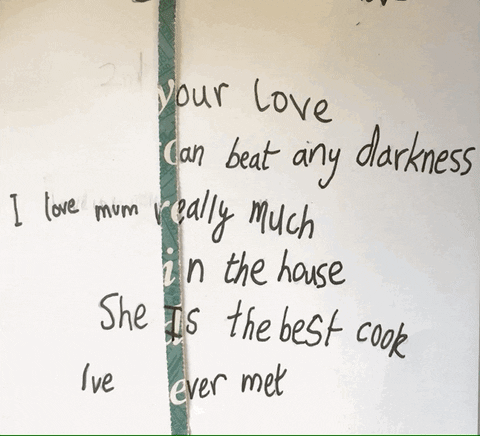 your love
can beat any darkness
I love mum really much
in the house
She Is the best cook
I've ever met